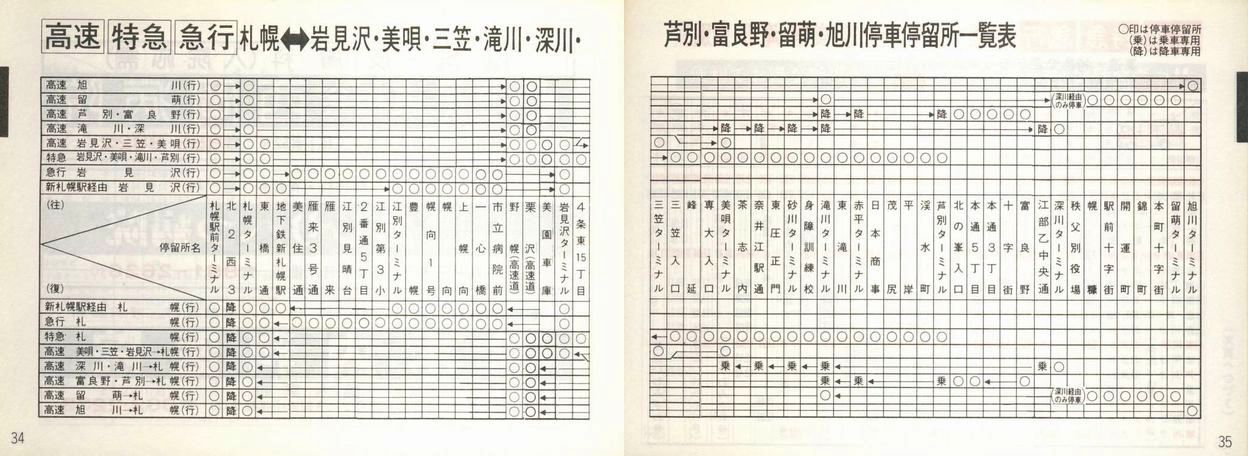 高速 特急 急行 札幌⬌岩見沢・美唄・三笠・滝川・深川・
芦別・富良野・留萌・旭川停車停留所一覧表
○印は停車停留所
(乗)は乗車専用
(降)は降車専用
高速 旭川(行)
高速 留萌(行)
高速 芦別・富良野(行)
高速 滝川・深川(行)
高速 岩見沢・三笠・美唄(行)
特急 岩見沢・美唄・滝川・芦別(行)
急行 岩見沢(行)
新札幌駅経由 岩見沢(行)
深川経由のみ停車
降 降 降 降 降 降 降
(往)
停留所名
(復)
札幌駅前ターミナル
北2西3
札幌ターミナル
東橋通
地下鉄新札幌駅
美住
雁来3号通
雁来
江別見晴台
2番通5丁目
江別第3小
江別ターミナル
豊幌
幌向1号
幌向
上幌向
一心橋
市立病院前
野幌(高速道)
栗沢(高速道)
美園車庫
岩見沢ターミナル
4条東15丁目
三笠ターミナル
三笠入口
峰延
専大入口
美唄ターミナル
茶志内
奈井江駅通
東圧正門
砂川ターミナル
身障訓練校
滝川ターミナル
東滝川
赤平ターミナル
日本商事
茂尻
平岸
渓水町
芦別ターミナル
北の峯入口
本通5丁目
本通3丁目
十字街
富良野
江部乙中央通
深川ターミナル
秩父別役場
碧水
駅前十字街
開運町
錦町
本町十字街
留萌ターミナル
旭川ターミナル
新札幌駅経由 札幌(行)
急行 札幌(行)
特急 札幌(行)
高速 美唄・三笠・岩見沢→札幌(行)
高速 深川・滝川→札幌(行)
高速 富良野・芦別→札幌(行)
高速 留萌→札幌(行)
高速 旭川→札幌(行)
降 降 降 降 降 降 降 降
乗 乗 乗 乗 乗 乗
深川経由のみ停車
34
35